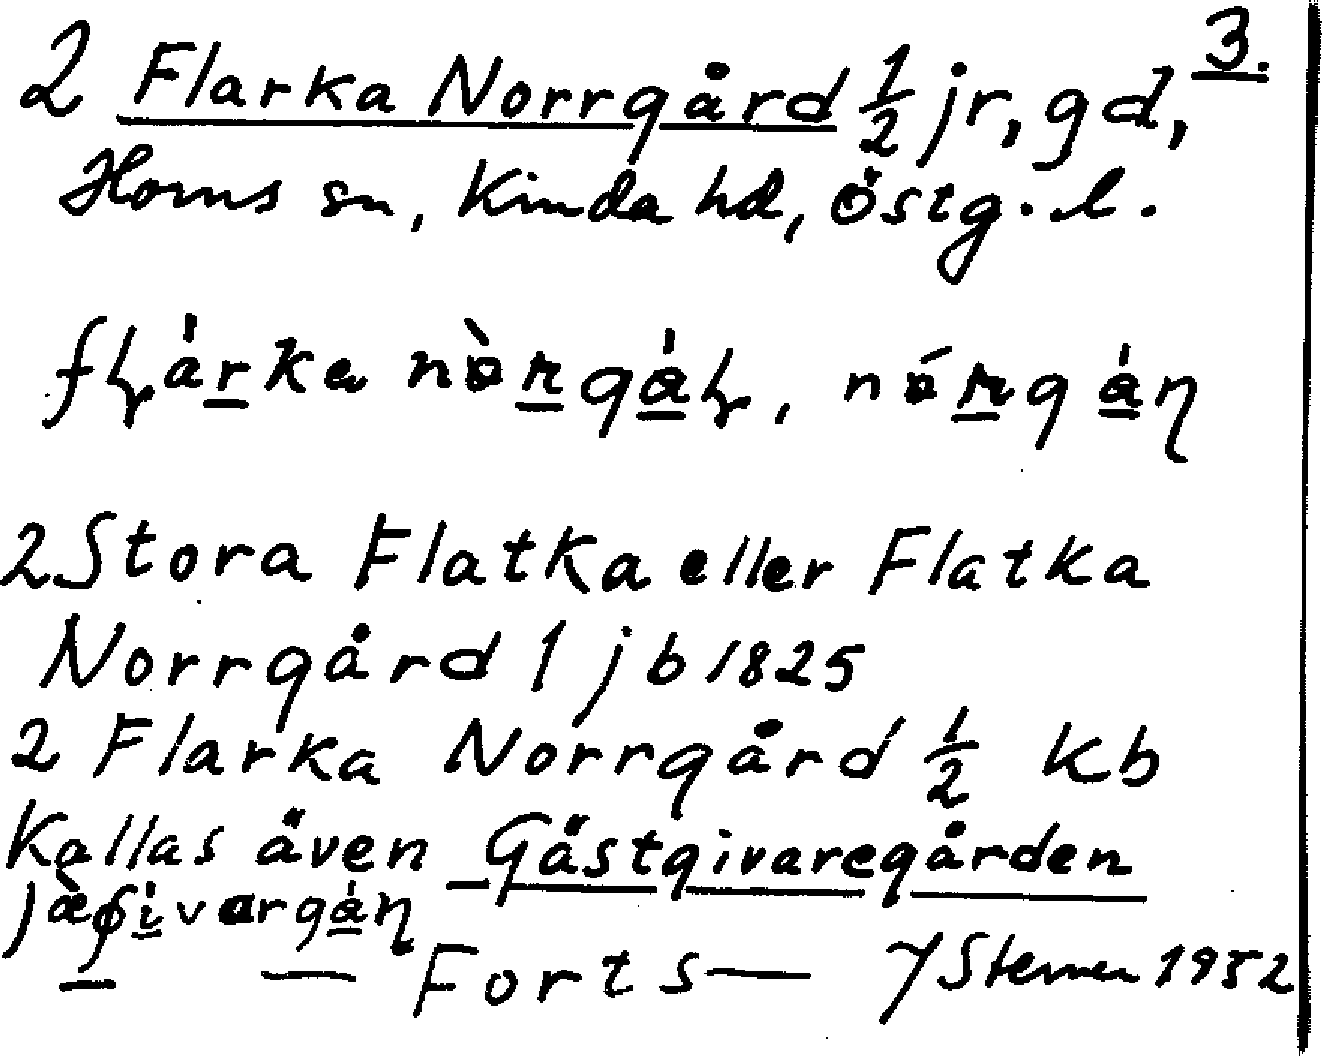 3.
2 Flarka Norrgård 1/2 jr, gd,
Horns sn, Kinda hd, Östg. l.
2 Stora Flatka eller Flatka
Norrgård 1 jb 1825
2 Flarka Norrgård 1/2 kb
Kallas även Gästgivaregården
— Forts —
Sterner 1952